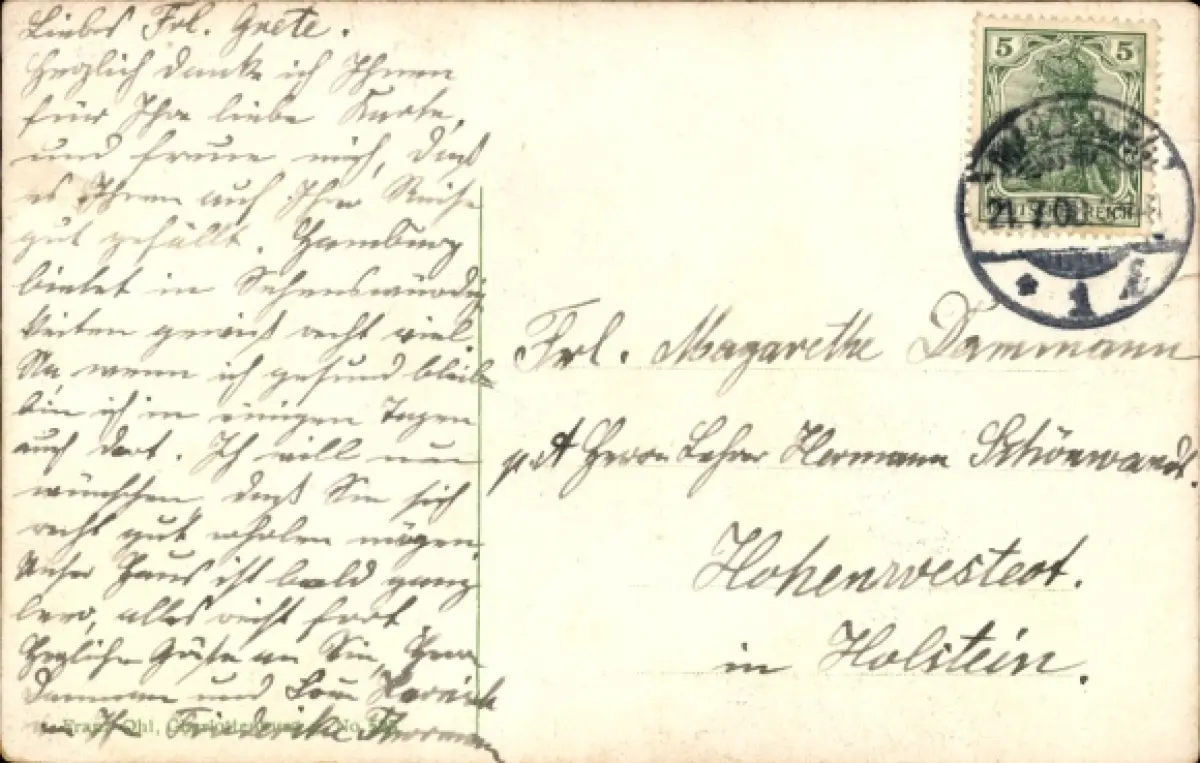 Liebes Frl. Grete.
Herzlich danke ich Ihnen
für Ihre liebe Karte,
und freue mich, daß
es Ihnen auf Ihrer Reise
gut gefällt. Hamburg
bietet in Sehenswürdig
keiten gewiß recht viel
Na, wenn ich gesund bleibe
bin ich in einigen Tagen
auch dort. Ich will nun
wünschen daß Sie sich
recht gut erholen mögen.
Unser Haus ist bald ganz
leer, alles reist fort.
Herzliche Grüße an Sie, Herrn
Dammann und Frau
Friederike
Franz Ohl, No.
5 5
REICH
21.7.0
* 1
Frl. Magarethe Dammann
Herrn Lehrer Hermann Schönwandt.
Hohenwestedt.
in Holstein.